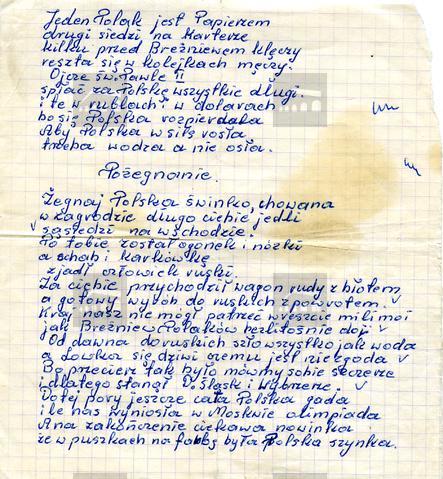 Jeden Polak jest Papieżem
drugi siedzi na Karterze
kilku przed Breżniewem klęczy
reszta się w kolejkach męczy.
Ojcze św. Pawle II
spłać za Polskę wszystkie długi
i te w rublach i w dolarach
bo się Polska rozpierdala
Aby Polska w siłę rosła
trzeba wodza a nie osła.
Pożegnanie.
Żegnaj Polska świnko, chowana
w zagrodzie długo ciebie jedli
sąsiedzi na wschodzie.
Po tobie został ogonek i nóżki
a schab i karkówkę
zjadł człowiek ruski.
Za ciebie przychodził wagon rudy z błotem
a gotowy wyrób do ruskich z powrotem.
Kraj nasz nie mógł patrzeć wreszcie mili moi
jak Breżniew Polaków bezlitośnie doi
Od dawna do ruskich szło wszystko jak woda
a Lowka się dziwi czemu jest niezgoda
Bo przecież tak było mówmy sobie szczerze
i dlatego stanął V. Śląsk i Wybrzeże.
Do tej pory jeszcze cała Polska gada
ile nas wyniosła w Moskwie olimpiada
A na zakończenie ciekawa nowinka
że w puszkach na farbę była Polska szynka.